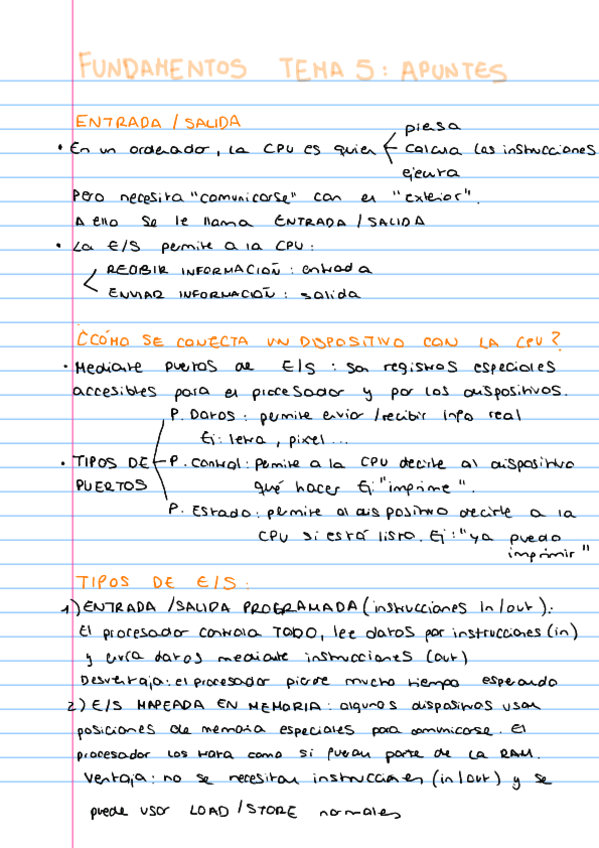 FUNDAMENTOS TEMA 5: APUNTES
ENTRADA / SALIDA
• En un ordenador, la CPU es quien piensa
calcula las instrucciones
ejecuta
Pero necesita "comunicarse" con el "exterior".
A ello se le llama ENTRADA / SALIDA
• La E/S permite a la CPU:
RECIBIR INFORMACIÓN: entrada
ENVIAR INFORMACIÓN: salida
¿CÓMO SE CONECTA UN DISPOSITIVO CON LA CPU?
• Mediante puertos de E/S: son registros especiales
accesibles para el procesador y por los dispositivos.
P. Datos: permite enviar / recibir info real
Ej: letra, pixel...
• TIPOS DE P. Control: Permite a la CPU decirle al dispositivo
PUERTOS qué hacer Ej: "imprime".
P. Estado: permite al dispositivo decirle a la
CPU si está listo. Ej: "ya puedo
imprimir"
TIPOS DE E/S:
1) ENTRADA / SALIDA PROGRAMADA (instrucciones in/out):
El procesador controla TODO, lee datos por instrucciones (in)
y envía datos mediante instrucciones (out)
Desventaja: el procesador pierde mucho tiempo esperando
2) E/S MAPEADA EN MEMORIA: algunos dispositivos usan
posiciones de memoria especiales para comunicarse. El
procesador los trata como si fueran parte de la RAM.
Ventaja: no se necesitan instrucciones (in/out) y se
puede usar LOAD / STORE normales